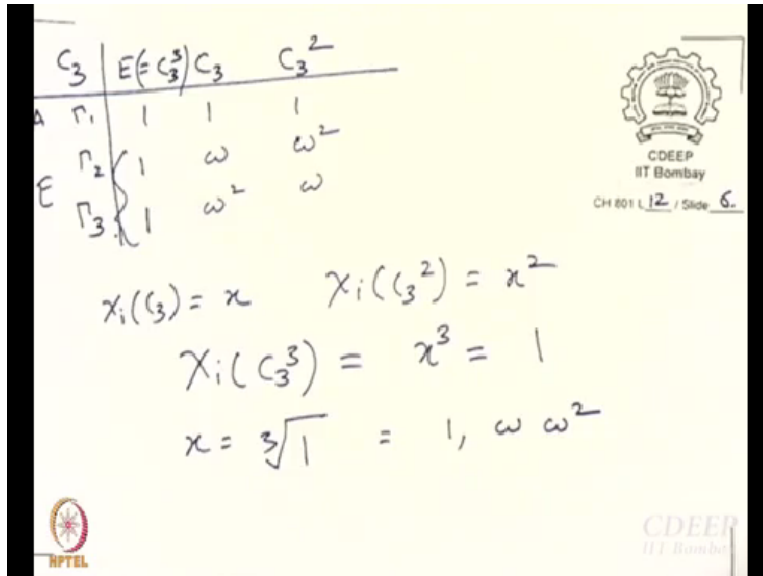 C₃ E(=C₃³) C₃ C₃²
A Γ₁ 1 1 1
Γ₂ 1 ω ω²
E
Γ₃ 1 ω² ω
CDEEP
IIT Bombay
CH 601 L 12 / Slide 6.
χᵢ(C₃) = x χᵢ(C₃²) = x²
χᵢ(C₃³) = x³ = 1
x = ∛1 = 1, ω ω²
NPTEL
CDEEP
IIT Bombay